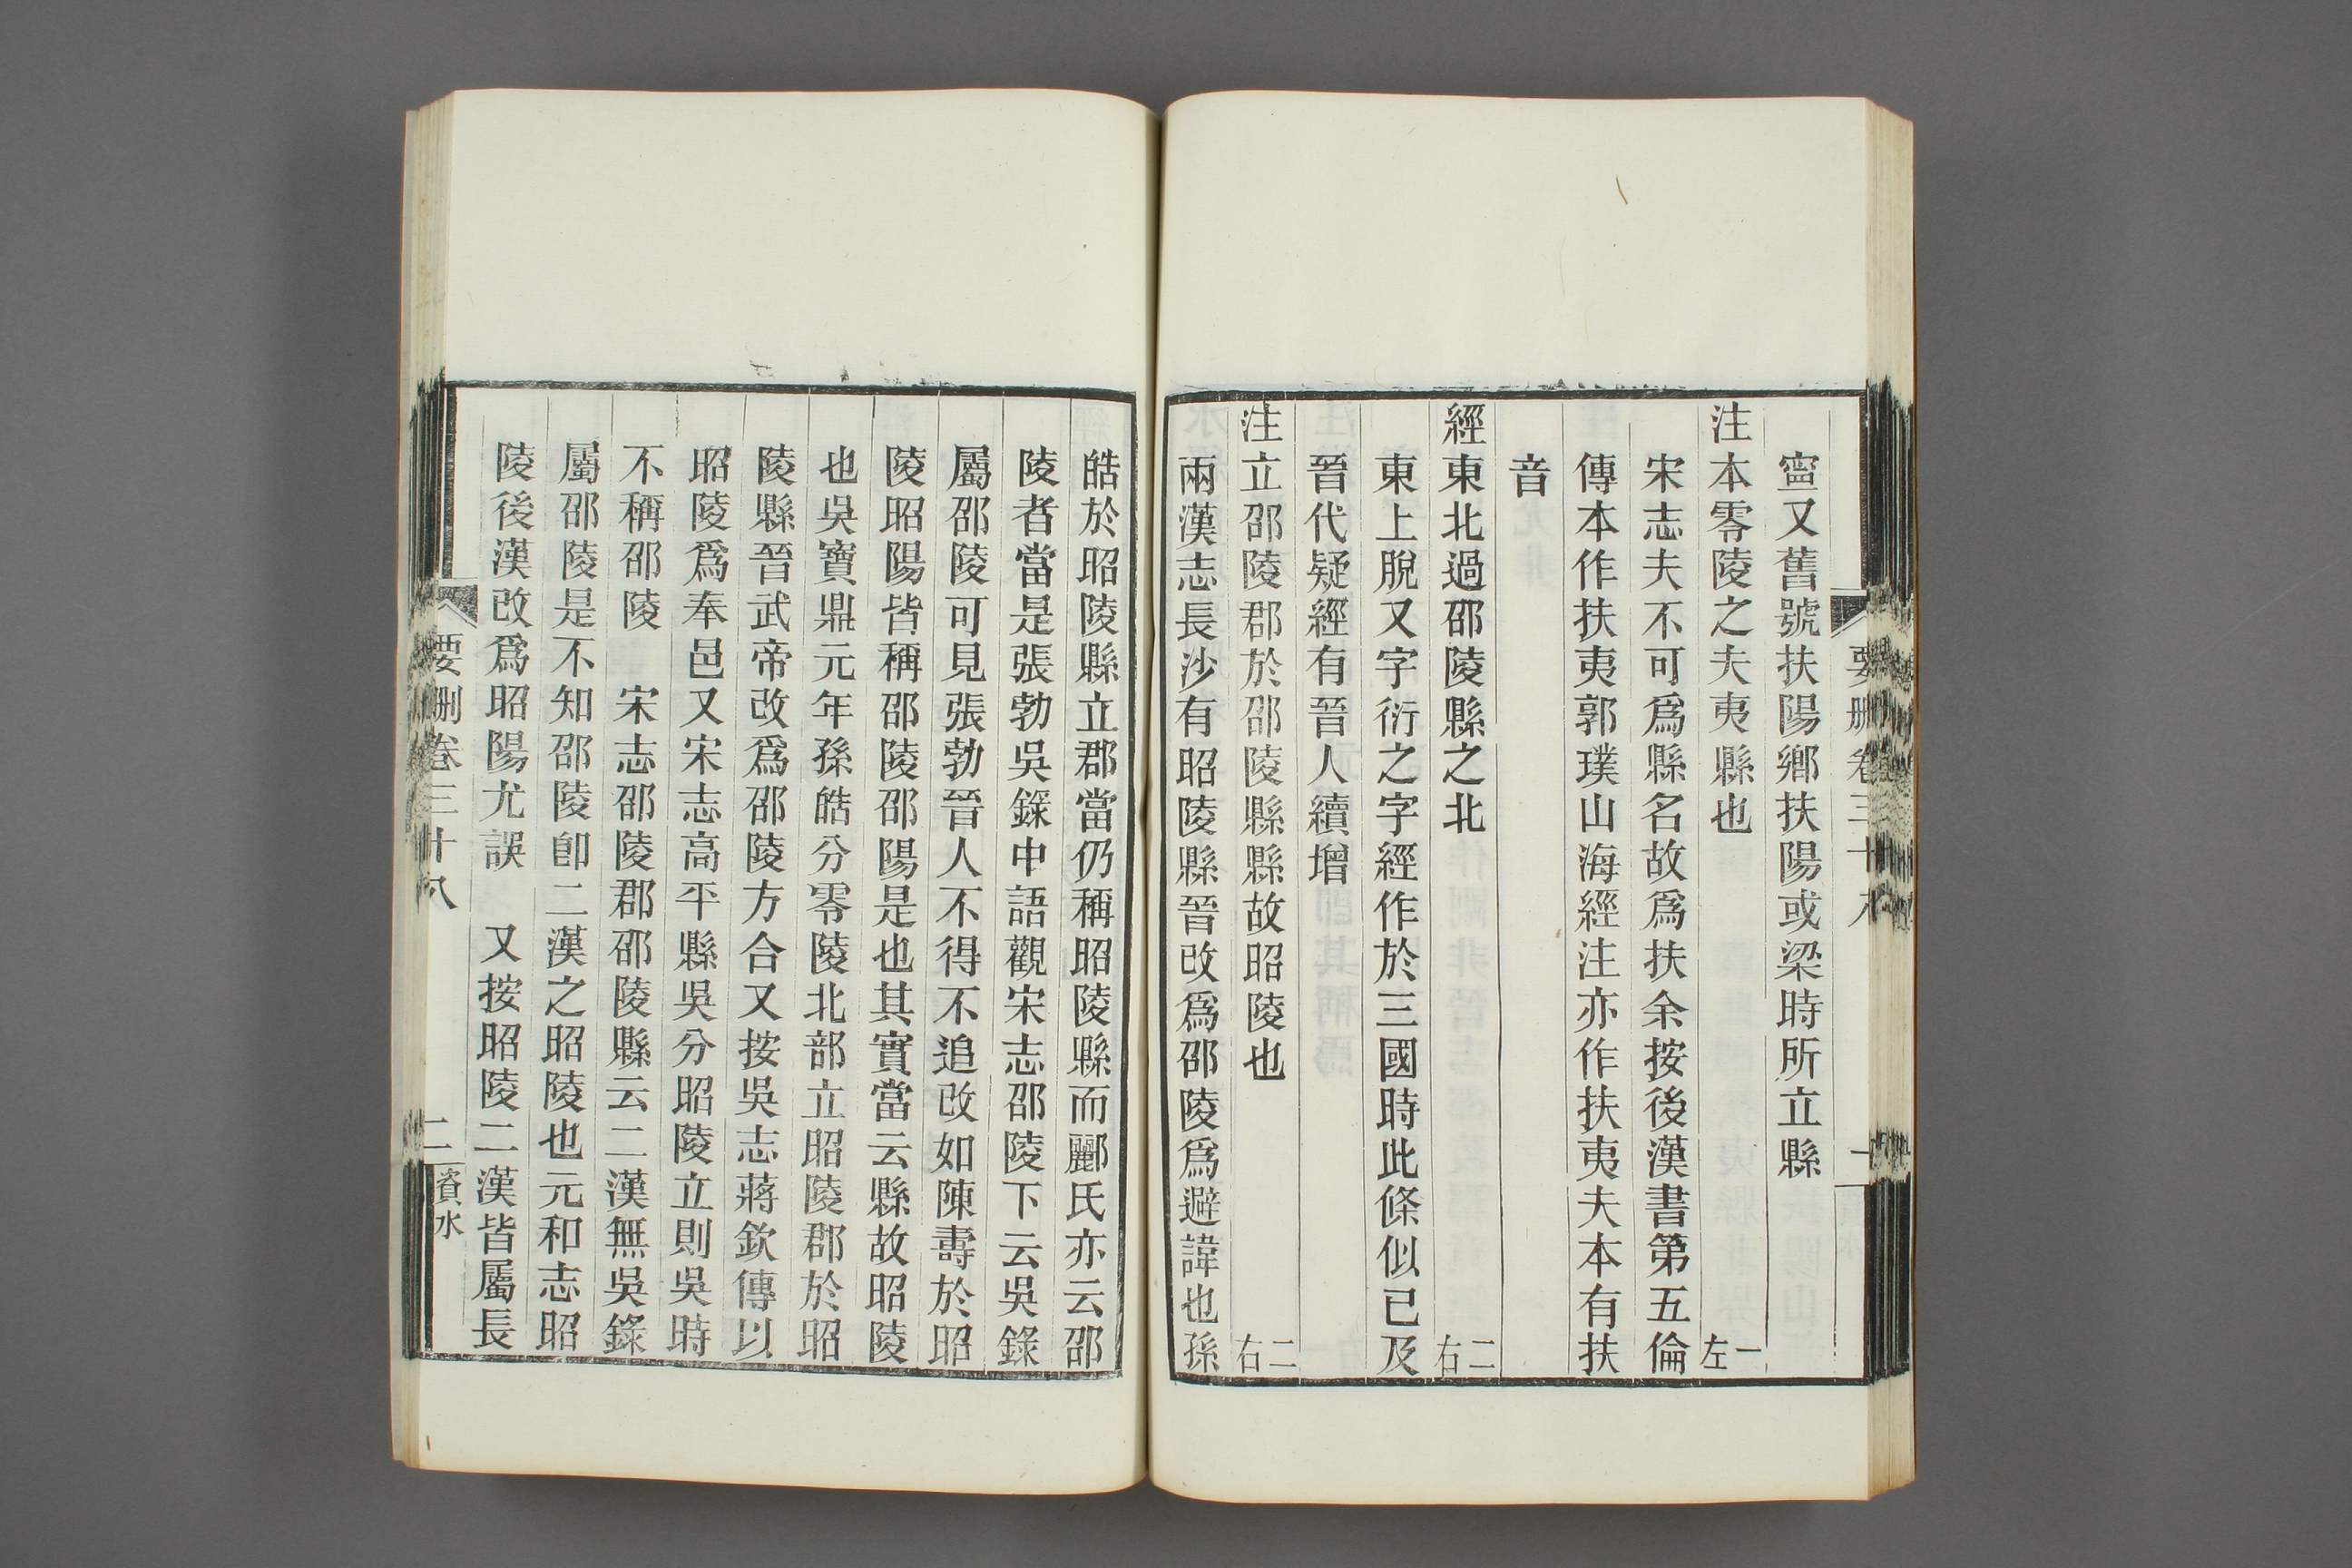 要刪卷三十八
一
甯又舊號扶陽鄉扶陽或梁時所立縣
注本零陵之夫夷縣也 一左
宋志夫不可爲縣名故爲扶余按後漢書第五倫
傳本作扶夷郭璞山海經注亦作扶夷夫本有扶
音
經東北過邵陵縣之北 二右
東上脫又字衍之字經作於三國時此條似已及
晉代疑經有晉人續增
注立邵陵郡於邵陵縣縣故昭陵也 二右
兩漢志長沙有昭陵縣晉改爲邵陵爲避諱也孫
皓於昭陵縣立郡當仍稱昭陵縣而酈氏亦云邵
陵者當是張勃吳錄中語觀宋志邵陵下云吳錄
屬邵陵可見張勃晉人不得不追改如陳壽於昭
陵昭陽皆稱邵陵邵陽是也其實當云縣故昭陵
也吳寶鼎元年孫皓分零陵北部立昭陵郡於昭
陵縣晉武帝改爲邵陵方合又按吳志蔣欽傳以
昭陵爲奉邑又宋志高平縣吳分昭陵立則吳時
不稱邵陵 宋志邵陵郡邵陵縣云二漢無吳錄
屬邵陵是不知邵陵卽二漢之昭陵也元和志昭
陵後漢改爲昭陽尤誤 又按昭陵二漢皆屬長
要刪卷三十八
二
資水